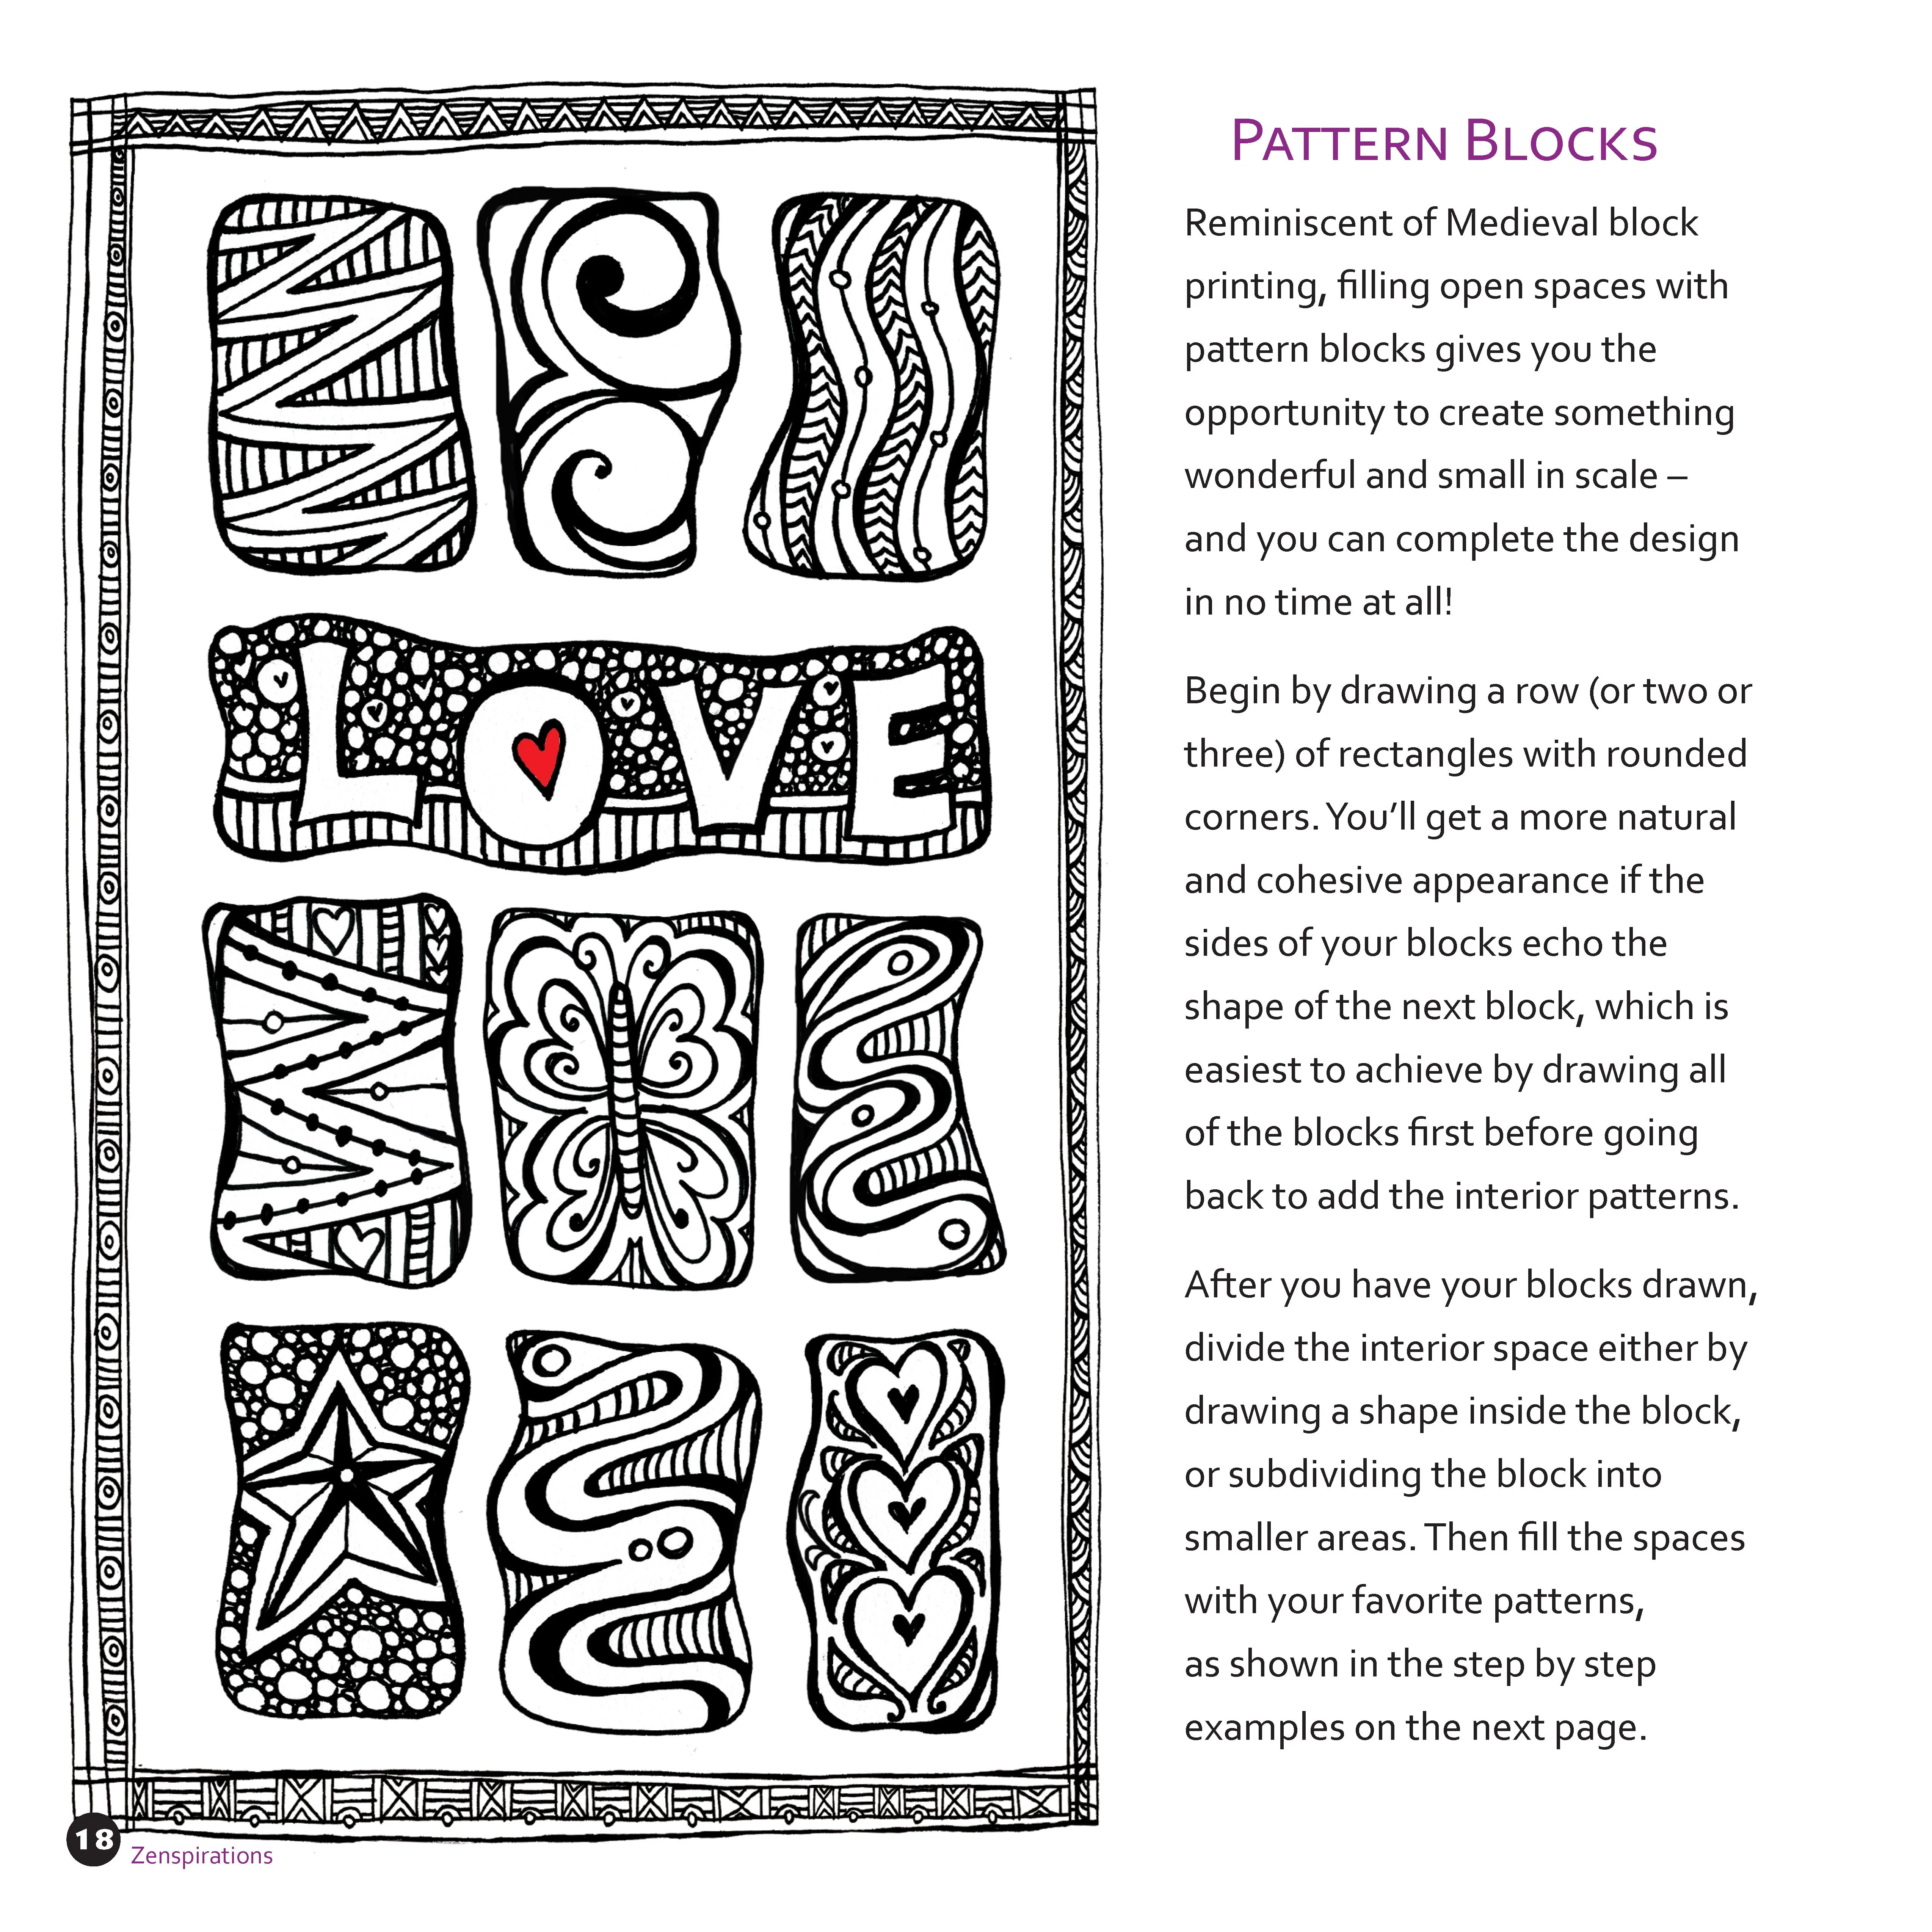 PATTERN BLOCKS
Reminiscent of Medieval block
printing, filling open spaces with
pattern blocks gives you the
opportunity to create something
wonderful and small in scale –
and you can complete the design
in no time at all!
Begin by drawing a row (or two or
three) of rectangles with rounded
corners. You’ll get a more natural
and cohesive appearance if the
sides of your blocks echo the
shape of the next block, which is
easiest to achieve by drawing all
of the blocks first before going
back to add the interior patterns.
After you have your blocks drawn,
divide the interior space either by
drawing a shape inside the block,
or subdividing the block into
smaller areas. Then fill the spaces
with your favorite patterns,
as shown in the step by step
examples on the next page.
LOVE
18
Zenspirations